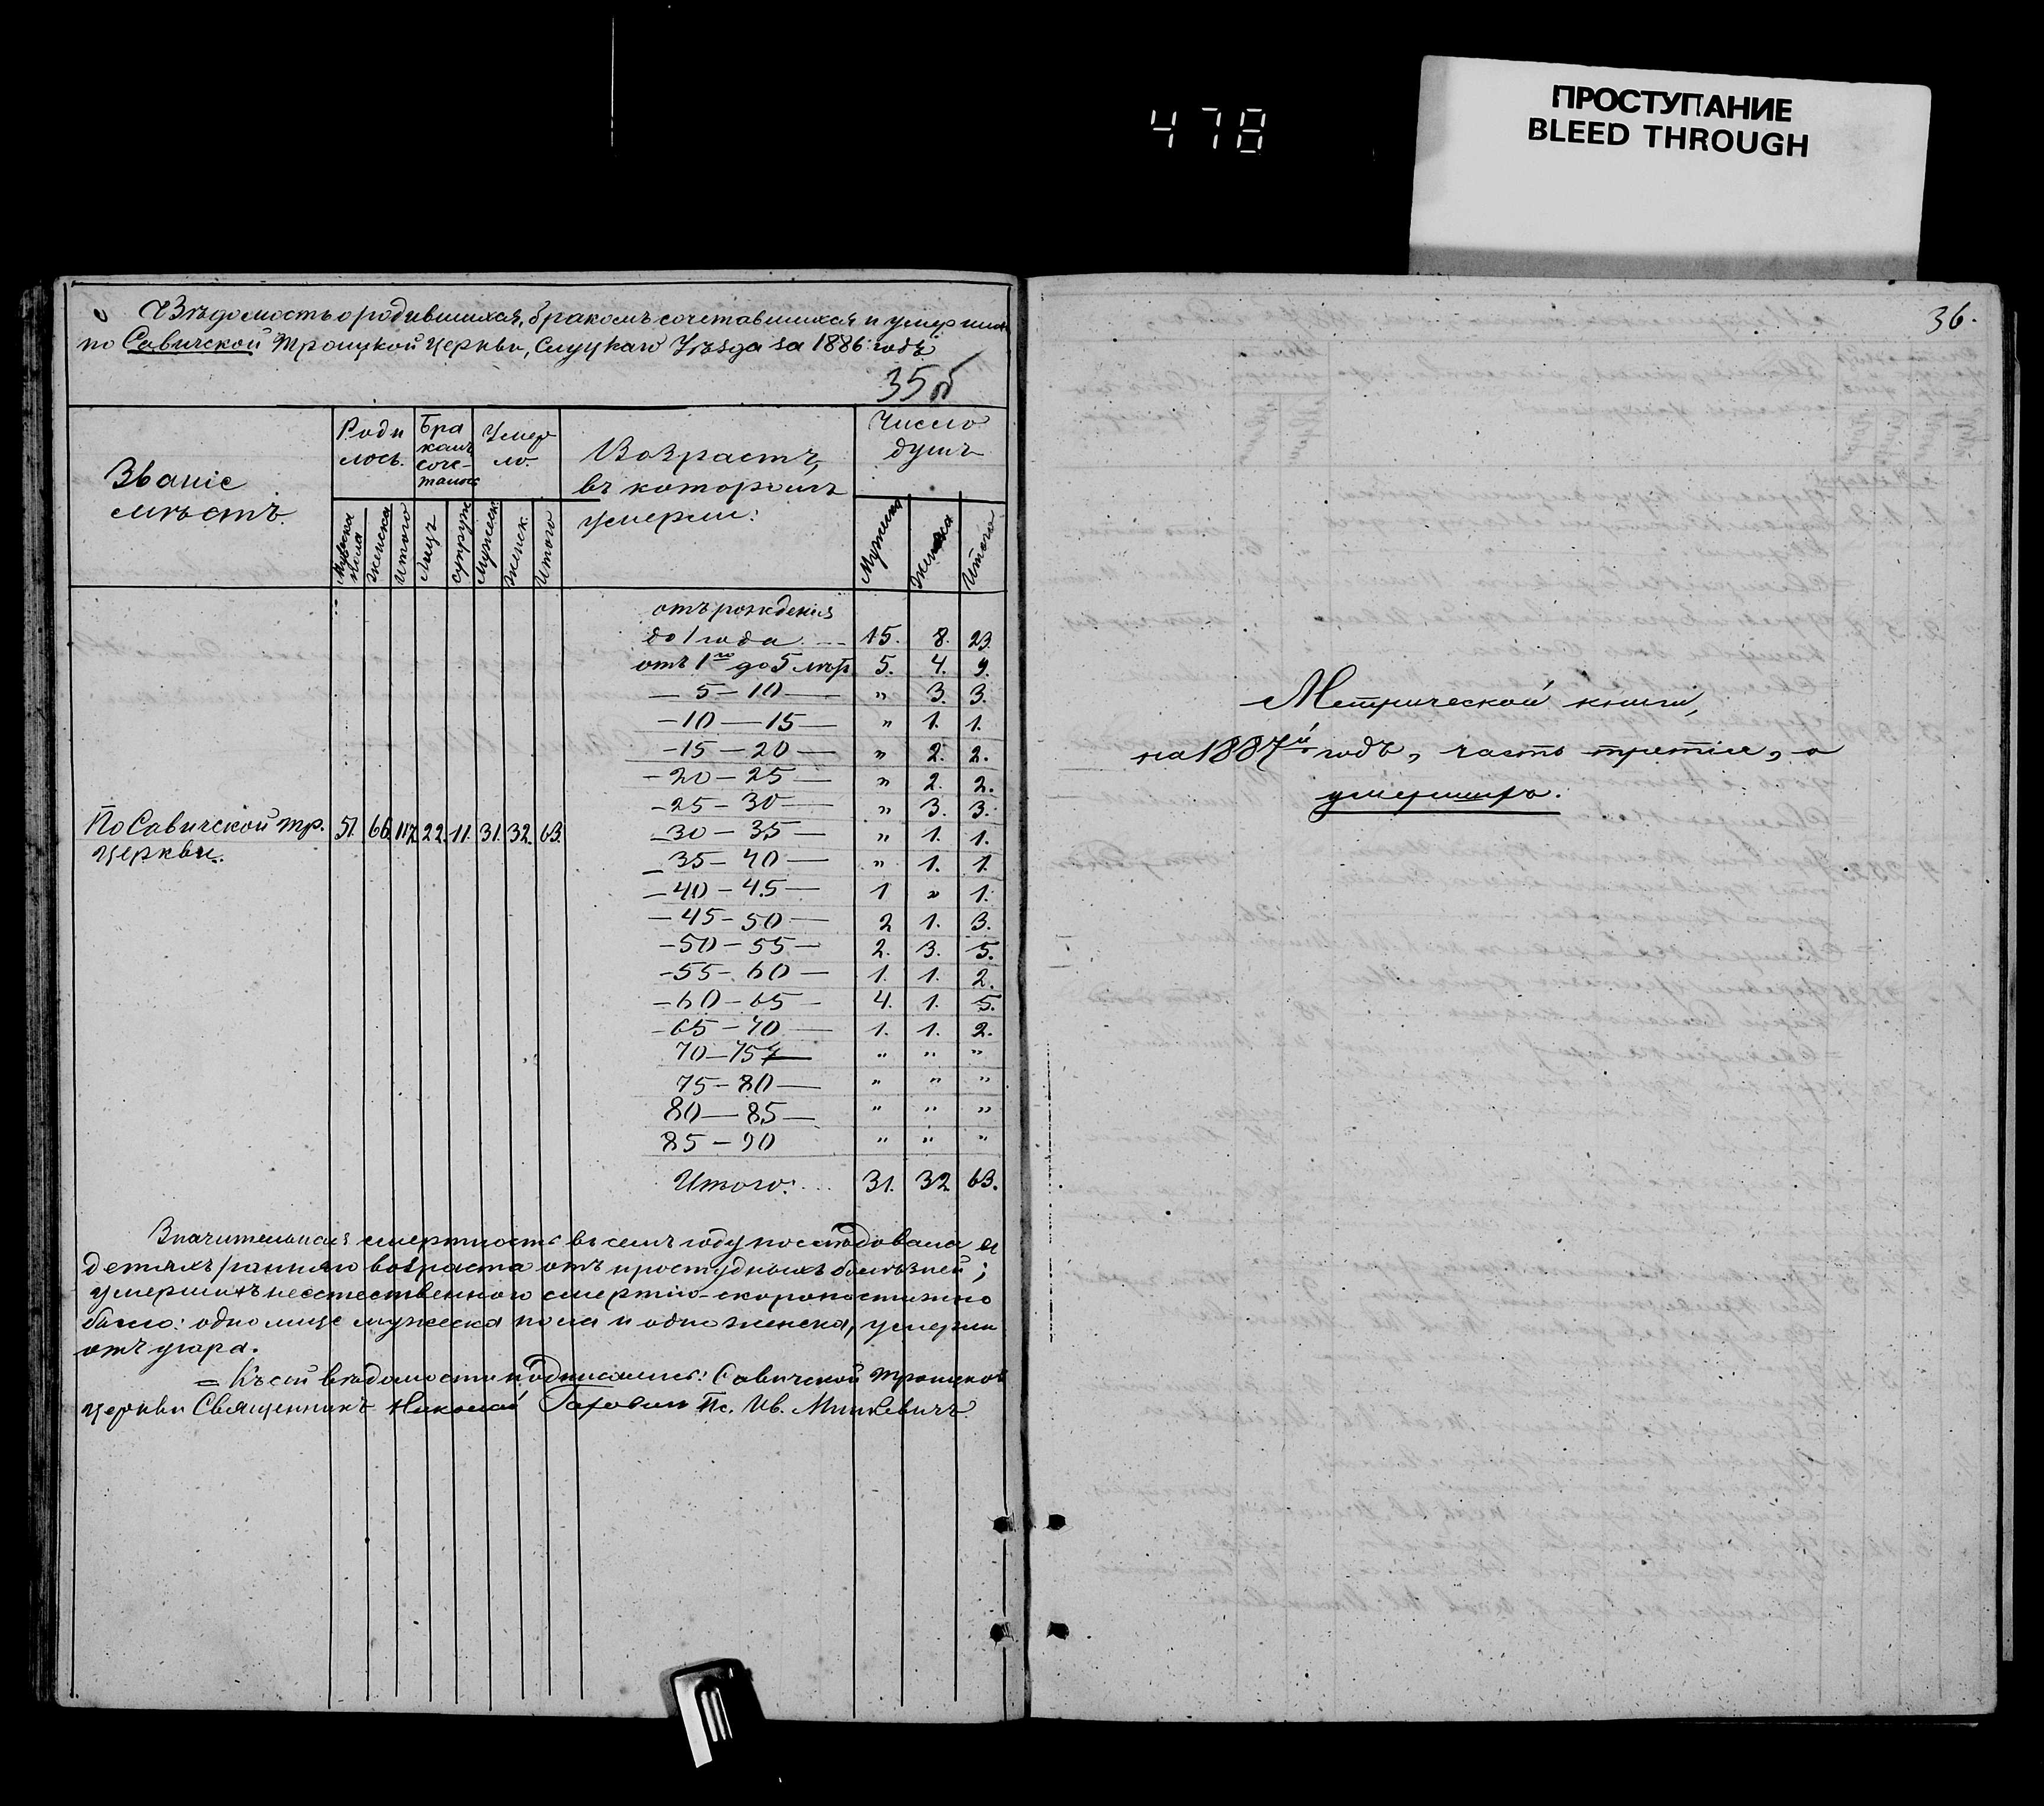 478
ПРОСТУПАНИЕ
BLEED THROUGH
Вѣдомость о родившихся, бракомъ сочетавшихся и умершихъ
по Савичской Троицкой церкви, Слуцкаго Уѣзда за 1886 годъ
35об
Званіе мѣстъ.
Роди лось.
Бра комъ соче- талось
Умер ло.
Возрастъ, въ которомъ умерли:
Число душъ
Мужеска пола
Женска
Итого
Лицъ
супруж
Мужеск.
Женск.
Итого
Мужеска
Женска
Итого
отъ рожденія
до 1 года 15. 8. 23.
отъ 1го до 5 лѣтъ 5. 4. 9.
— 5 — 10 — „ 3. 3.
— 10 — 15 — „ 1. 1.
— 15 — 20 — „ 2. 2.
— 20 — 25 — „ 2. 2.
— 25 — 30 — „ 3. 3.
По Савичской Тр. 51. 66. 117. 22. 11. 31. 32. 63.
церкви.
— 30 — 35 — „ 1. 1.
— 35 — 40 — „ 1. 1.
— 40 — 45 — 1 „ 1.
— 45 — 50 — 2 1. 3.
— 50 — 55 — 2. 3. 5.
— 55 — 60 — 1. 1. 2.
— 60 — 65 — 4. 1. 5.
— 65 — 70 — 1. 1. 2.
70 — 75 — „ „ „
75 — 80 — „ „ „
80 — 85 — „ „ „
85 — 90 „ „ „
Итого: 31. 32. 63.
Значительная смертность въ семъ году послѣдовала въ
детяхъ ранняго возраста отъ простудныхъ болѣзней;
умершихъ неестественною смертію - скоропостижно
было: одно лице мужеска пола и одно женска, умерли
отъ угара.
= Къ сей вѣдомости подписались: Савичской Троицкой
церкви Священникъ Николай Пс. Ив. Мишкевичъ.
36.
Метрической книги,
на 1887й годъ, часть третія, о
умершихъ.